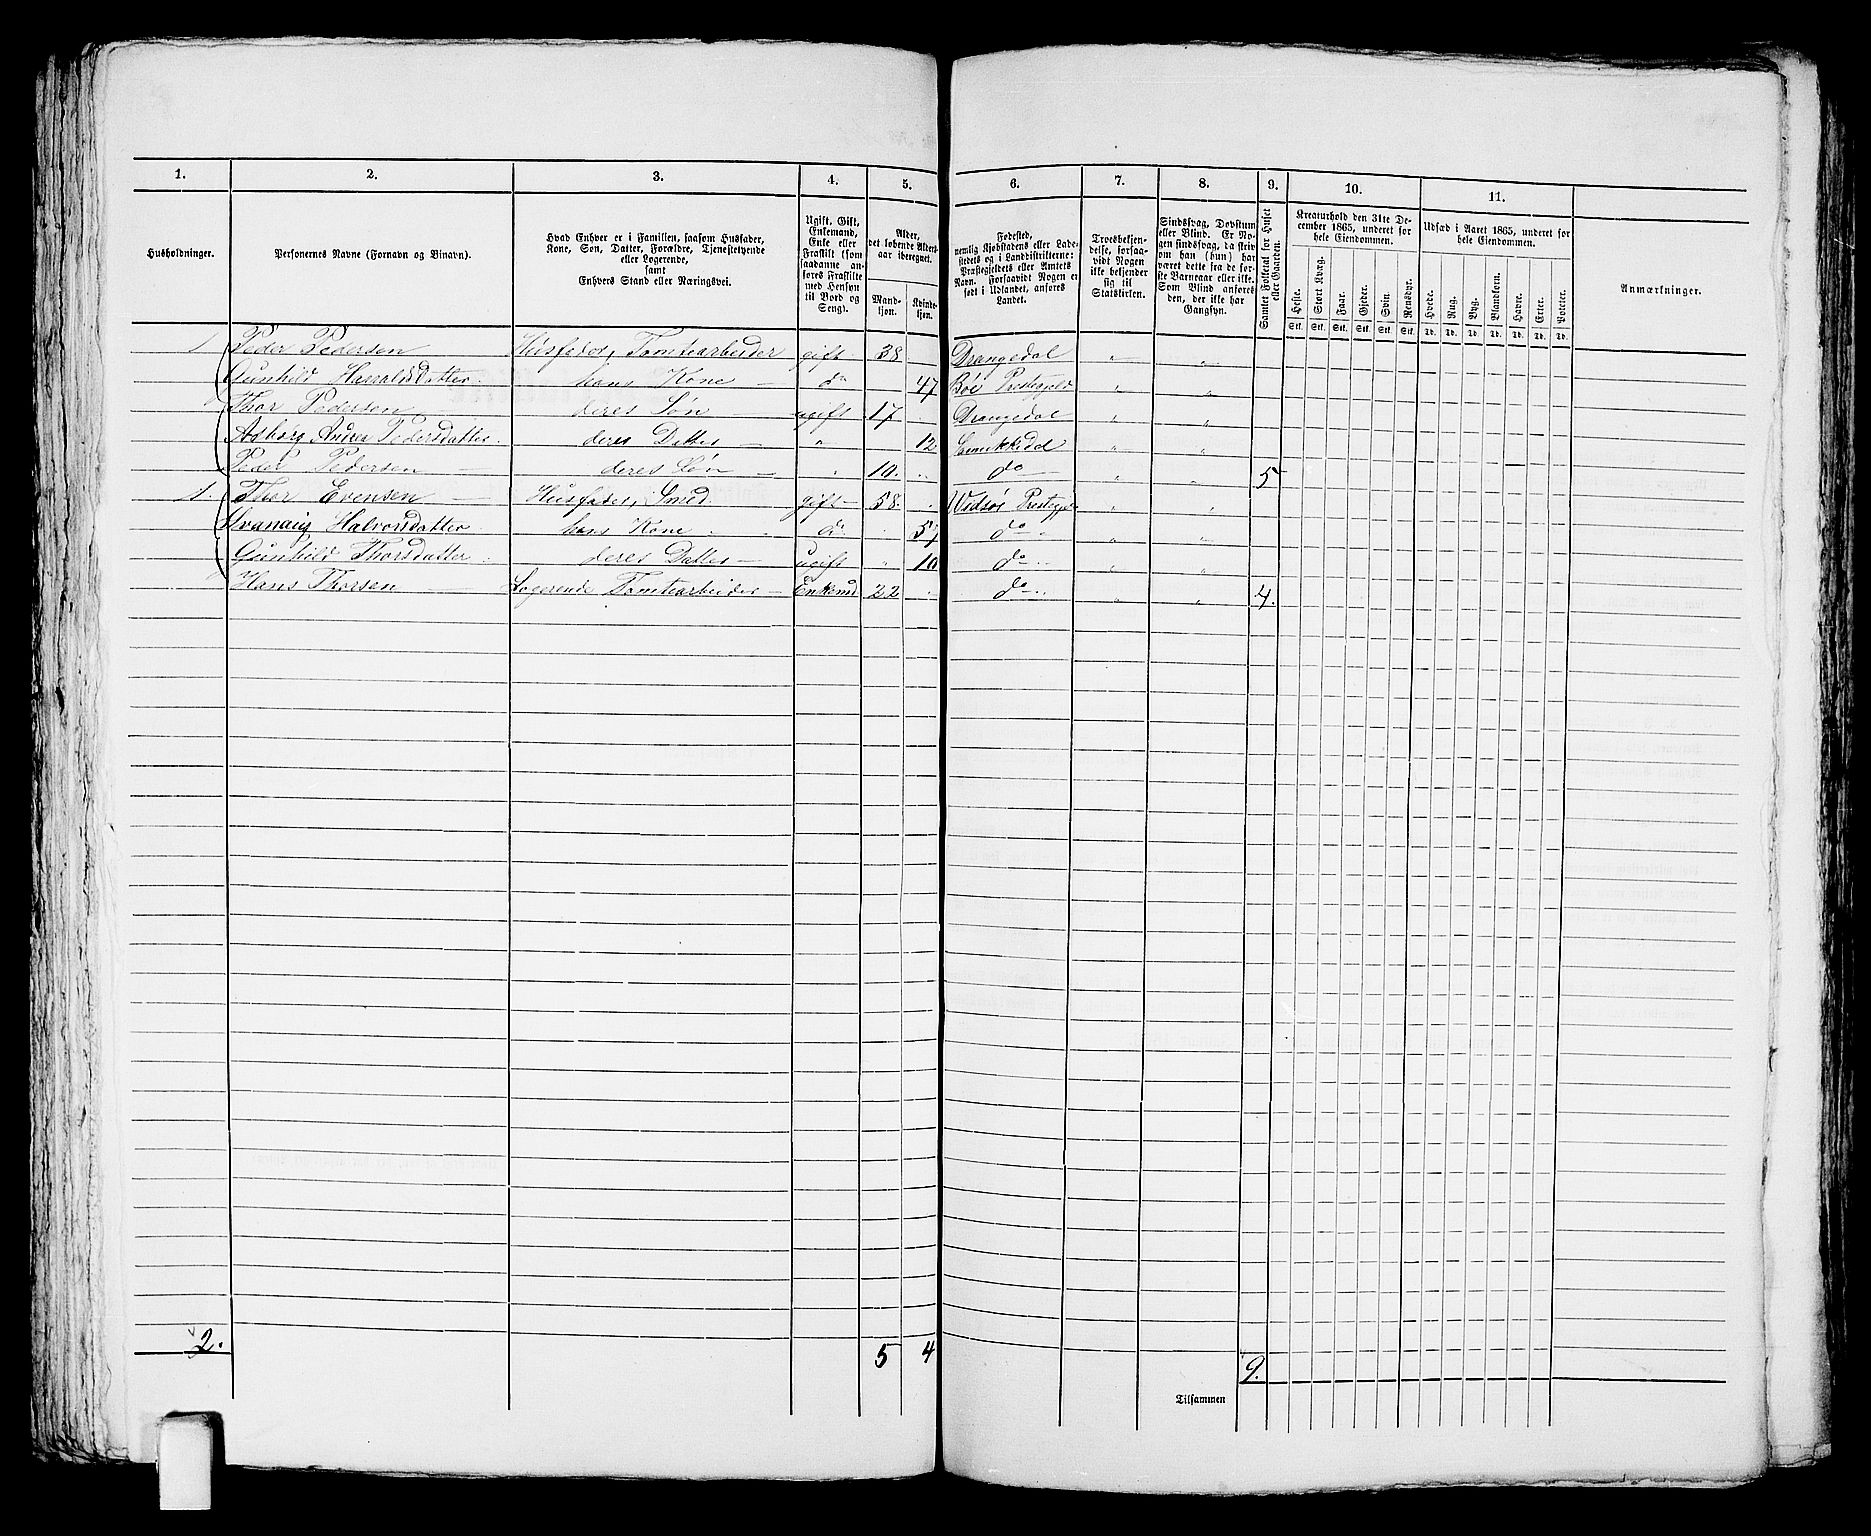 1. 2. 3. 4. 5. 6. 7. 8. 9. 10. 11.
Husholdninger.
Personernes Navne (Fornavn og Binavn).
Hvad Enhver er i Familien, saasom Husfader,
Kone, Søn, Datter, Forældre, Tjenestetyende
eller Logerende,
samt
Enhvers Stand eller Næringsvei.
Ugift, Gift,
Enkemand,
Enke eller
Fraskilt (som
saadanne an-
føres Fraskilte
med Hensyn
til Bord og
Seng).
Alder,
det løbende Alders-
aar iberegnet.
Mand-
kjøn.
Kvinde-
kjøn.
Fødested,
nemlig Kjøbstadens eller Lade-
stedets og i Landdistrikterne:
Præstegjeldets eller Amtets
Navn. Forsaavidt Nogen er
født i Udlandet, anføres
Landet.
Troesbekjen-
delse, forsaa-
vidt Nogen
ikke bekjender
sig til
Statskirken.
Sindssvag, Døvstum
eller Blind. Er No-
gen sindssvag, da skriv
om han (hun) har
været dette fra de før-
ste Barneaar eller ikke.
Som Blind anføres
den, der ikke har
Gangsyn.
Samlet Folketal for Huset
eller Gaarden.
Kreaturhold den 31te De-
cember 1865, underet for
hele Eiendommen.
Heste. Stort Kvæg. Faar. Gjeder. Svin. Rensdyr.
Stk. Stk. Stk. Stk. Stk. Stk.
Udsæd i Aaret 1865, underet for
hele Eiendommen.
Hvede. Rug. Byg. Blandkorn. Havre. Erter. Poteter.
Td. Td. Td. Td. Td. Td. Td.
Anmærkninger.
1 Peder Pedersen Husfader, Tomtearbeider gift 38 Drangedal " "
Gunhild HarraldsDatter. hans Kone — do 47 Böe Prestegjeld " "
Thor Pedersen — deres Søn — ugift 17 Drangedal " "
Asborg Andrea Pedersdatter. deres Datter — " 12 " "
Peder Pedersen — deres Søn — " 10. do " " 5
1. Thor Evensen — Husfader, Smed. gift 58. " "
Halvorsdatter hans Kone do 57 do " "
Gunhild Thorsdatter deres Datter — ugift " 10 do " "
Hans Thorsen — Logerende Tomtearbeider — Enkemd 22 do " " 4.
2. 5 4 9.
Tilsammen